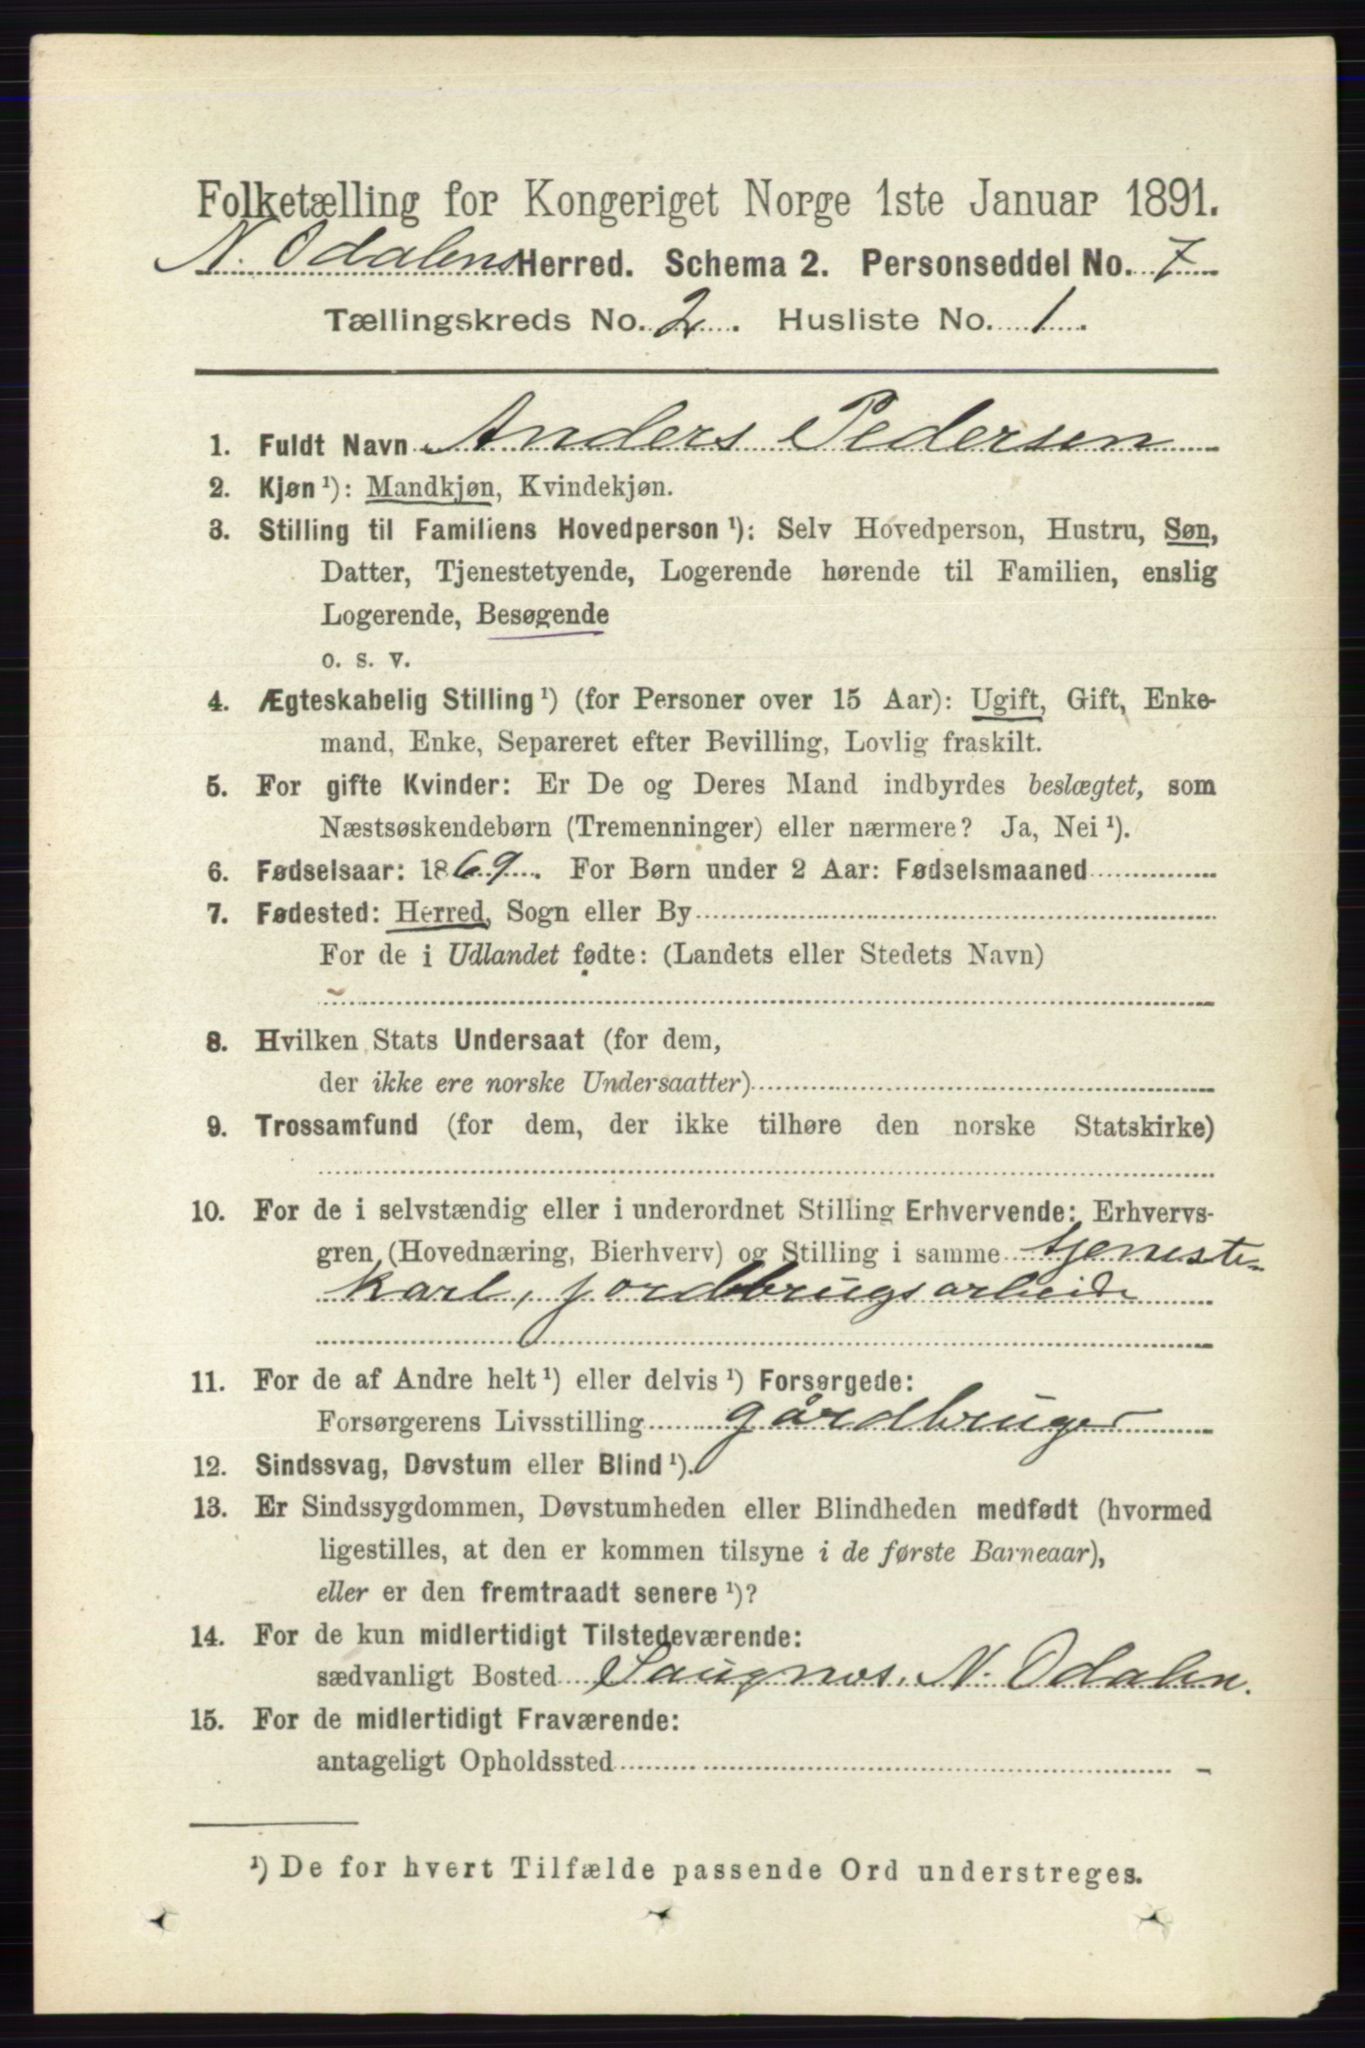 Folketælling for Kongeriget Norge 1ste Januar 1891.
N. Odalens Herred. Schema 2. Personseddel No. 7
Tællingskreds No. 2. Husliste No. 1.
1. Fuldt Navn Anders Pedersen
2. Kjøn ¹): Mandkjøn, Kvindekjøn.
3. Stilling til Familiens Hovedperson ¹): Selv Hovedperson, Hustru, Søn,
Datter, Tjenestetyende, Logerende hørende til Familien, enslig
Logerende, Besøgende
o. s. v.
4. Ægteskabelig Stilling ¹) (for Personer over 15 Aar): Ugift, Gift, Enke-
mand, Enke, Separeret efter Bevilling, Lovlig fraskilt.
5. For gifte Kvinder: Er De og Deres Mand indbyrdes beslægtet, som
Næstsøskendebørn (Tremenninger) eller nærmere? Ja, Nei ¹).
6. Fødselsaar: 1869. For Børn under 2 Aar: Fødselsmaaned
7. Fødested: Herred, Sogn eller By
For de i Udlandet fødte: (Landets eller Stedets Navn)
8. Hvilken Stats Undersaat (for dem,
der ikke ere norske Undersaatter)
9. Trossamfund (for dem, der ikke tilhøre den norske Statskirke)
10. For de i selvstændig eller i underordnet Stilling Erhvervende: Erhvervs-
gren (Hovednæring, Bierhverv) og Stilling i samme tjeneste-
karl, jordbrugsarbeide
11. For de af Andre helt ¹) eller delvis ¹) Forsørgede:
Forsørgerens Livsstilling gårdbruger
12. Sindssvag, Døvstum eller Blind ¹).
13. Er Sindssygdommen, Døvstumheden eller Blindheden medfødt (hvormed
ligestilles, at den er kommen tilsyne i de første Barneaar),
eller er den fremtraadt senere ¹)?
14. For de kun midlertidigt Tilstedeværende:
sædvanligt Bosted Saugnæs, N. Odalen.
15. For de midlertidigt Fraværende:
antageligt Opholdssted
¹) De for hvert Tilfælde passende Ord understreges.